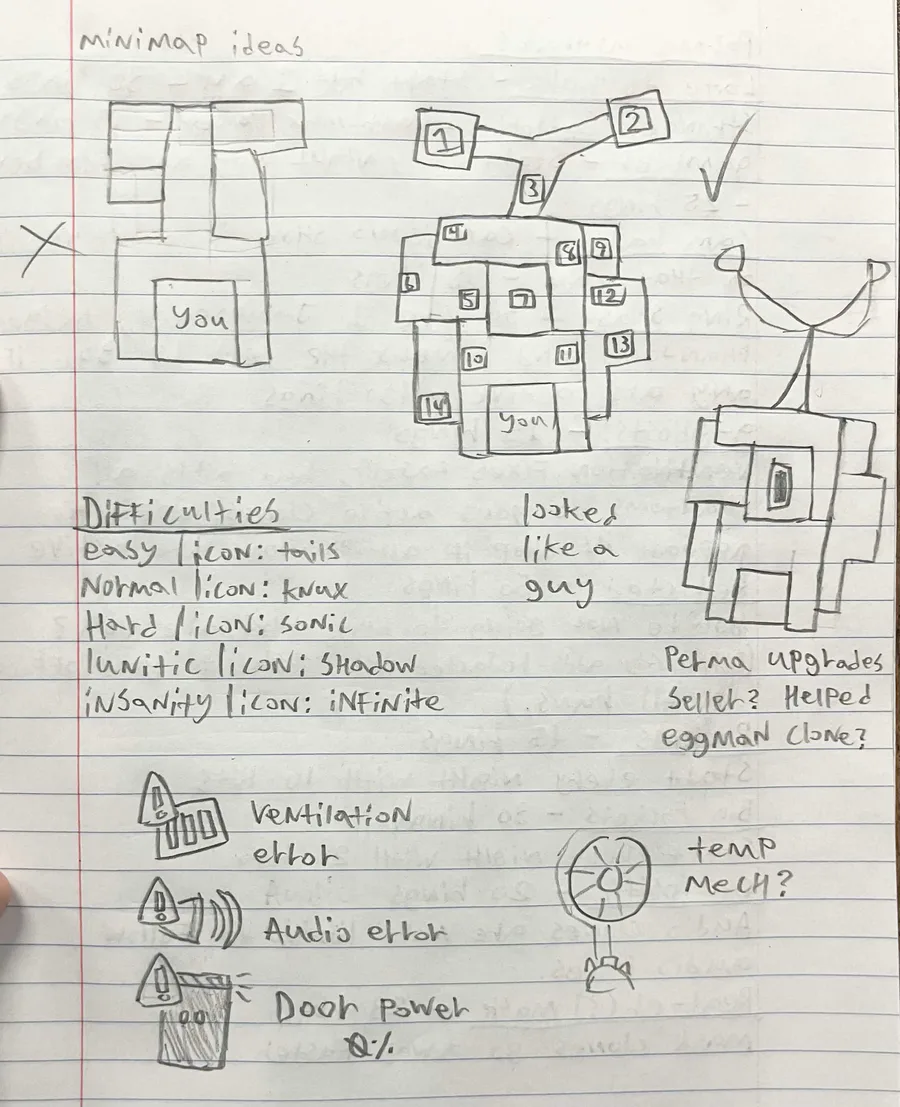 MiNiMAP ideas
1
2
3
4
8
9
6
5
7
12
10
11
13
14
You
You
Difficulties
easy / icon: tails
Normal / icon: knux
Hard / icon: sonic
lunitic / icon: SHadow
iNSanity / icon: iNFiNite
looked
like a
guy
Perma upgrades
Seller? Helped
eggman clone?
Ventilation
error
Audio error
Door power
0%
temp
Mech?